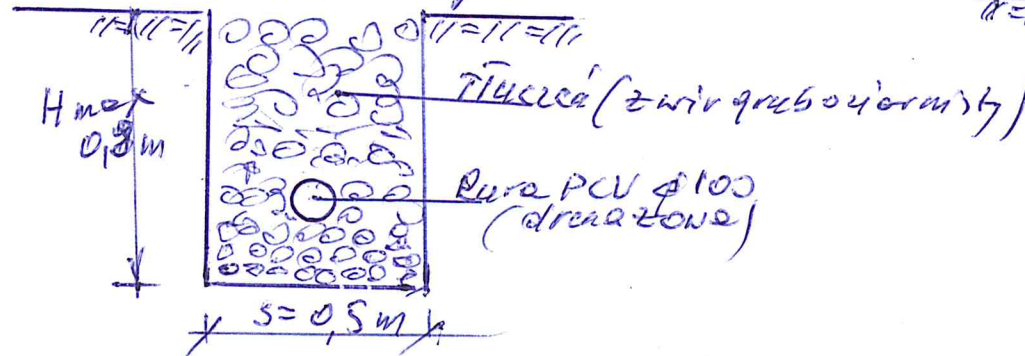 H max
0,8 m
Tłuczeń (żwir gruboziarnisty)
Rura PCV φ100
(drenażowa)
s = 0,5 m